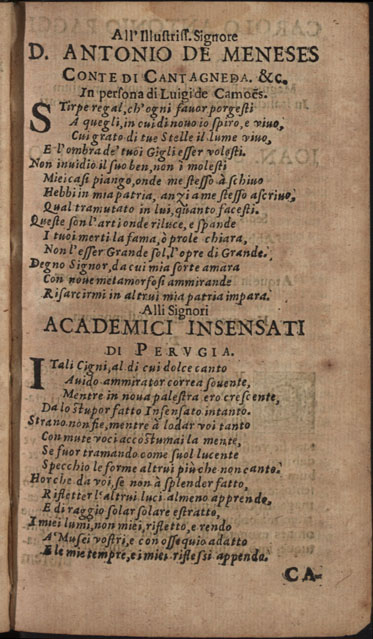 All' Illustriss. Signore
D. ANTONIO DE MENESES
CONTE DI CANTAGNEDA. &c.
In persona di Luigi de Camoẽs.
STirpe regal, ch'ogni fauor porgesti
A quegli, in cui di nouo io spiro, e viuo,
Cui grato di tue Stelle il lume viuo,
E l'ombra de' tuoi Gigli esser volesti.
Non inuidio il suo ben, non i molesti
Miei casi piango, onde me stesso à schiuo
Hebbi in mia patria, anzi a me stesso ascriuo,
Qual tramutato in lui, quanto facesti.
Queste son l'arti onde riluce, e spande
I tuoi merti la fama, ò prole chiara,
Non l'esser Grande sol, l'opre di Grande.
Degno Signor, da cui mia sorte amara
Con noue metamorfosi ammirande
Risarcirmi in altrui mia patria impara.
Alli Signori
ACADEMICI INSENSATI
DI PERVGIA.
ITali Cigni, al di cui dolce canto
Auido ammirator correa souente,
Mentre in noua palestra ero crescente,
Da lo stupor fatto Insensato intanto.
Strano non fie, mentre à lodar voi tanto
Con mute voci accostumai la mente,
Se fuor tramando come suol lucente
Specchio le forme altrui più che non canto.
Hor che da voi, se non à splender fatto,
Rifletter l'altrui luci almeno apprendo,
E di raggio solar solare estratto,
I miei lumi, non miei, rifletto, e rendo
A' Musei vostri, e con ossequio adatto
E le mie tempre, e i miei riflessi appendo.
CA-